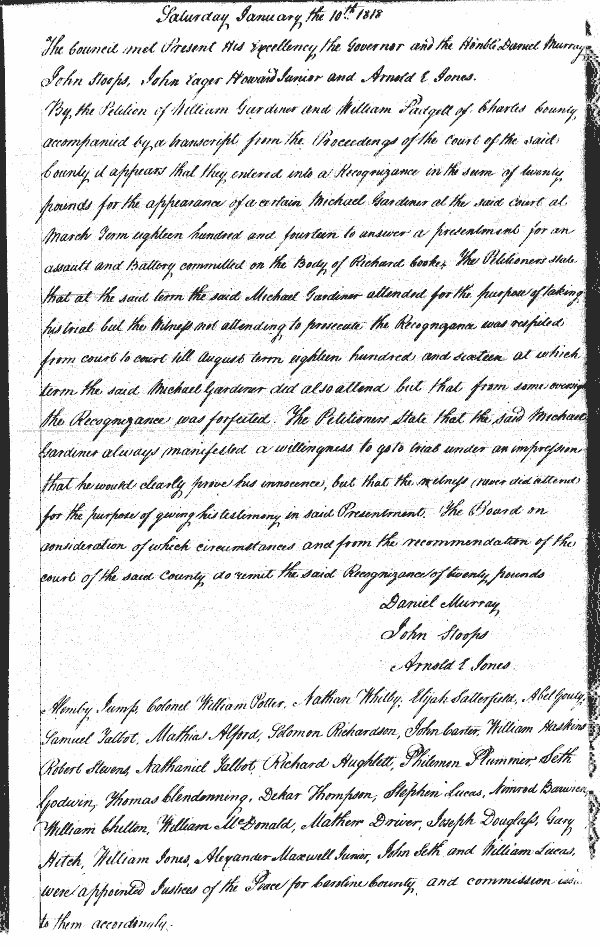 Saturday January the 10th 1818
The Council met Present His Excellency the Governor and the Honble Daniel Murray
John Stoops, John Eager Howard Junior and Arnold E Jones.
By the Petition of William Gardiner and William Padgett of Charles County,
accompanied by a transcript from the Proceedings of the Court of the said
County it appears that they entered into a Recognizance in the sum of twenty
pounds for the appearance of a certain Michael Gardiner at the said Court at
March Term eighteen hundred and fourteen to answer a presentment for an
assault and Battery committed on the Body of Richard Cooke. The Petitioners state
that at the said term the said Michael Gardiner attended for the purpose of taking
his trial but the Witness not attending to prosecute the Recognizance was respited
from court to court till August term eighteen hundred and sixteen at which
term the said Michael Gardiner did also attend but that from some oversight
the Recognizance was forfeited. The Petitioners State that the said Michael
Gardiner always manifested a willingness to go to trial under an impression
that he would clearly prove his innocence, but that the witness never did attend
for the purpose of giving his testimony in said Presentment. The Board on
consideration of which circumstances and from the recommendation of the
court of the said County do remit the said Recognizance of twenty pounds
Daniel Murray
John Stoops
Arnold E Jones
Alemby Jump, Colonel William Potter, Nathan Whitby, Elijah Satterfield, Abel Gouty,
Samuel Talbot, Mathias Alford, Solomon Richardson, John Carter, William Haskins
Robert Stevens, Nathaniel Talbot, Richard Hughlett, Philemon Plummer, Seth
Godwin, Thomas Clendenning, Dekar Thompson, Stephen Lucas, Nimrod Barwick
William Chilton, William McDonald, Mathew Driver, Joseph Douglass, Gary
Hitch, William Jones, Alexander Maxwell Junior, John Seth and William Lucas,
were appointed Justices of the Peace for Caroline County, and commission
to them accordingly.